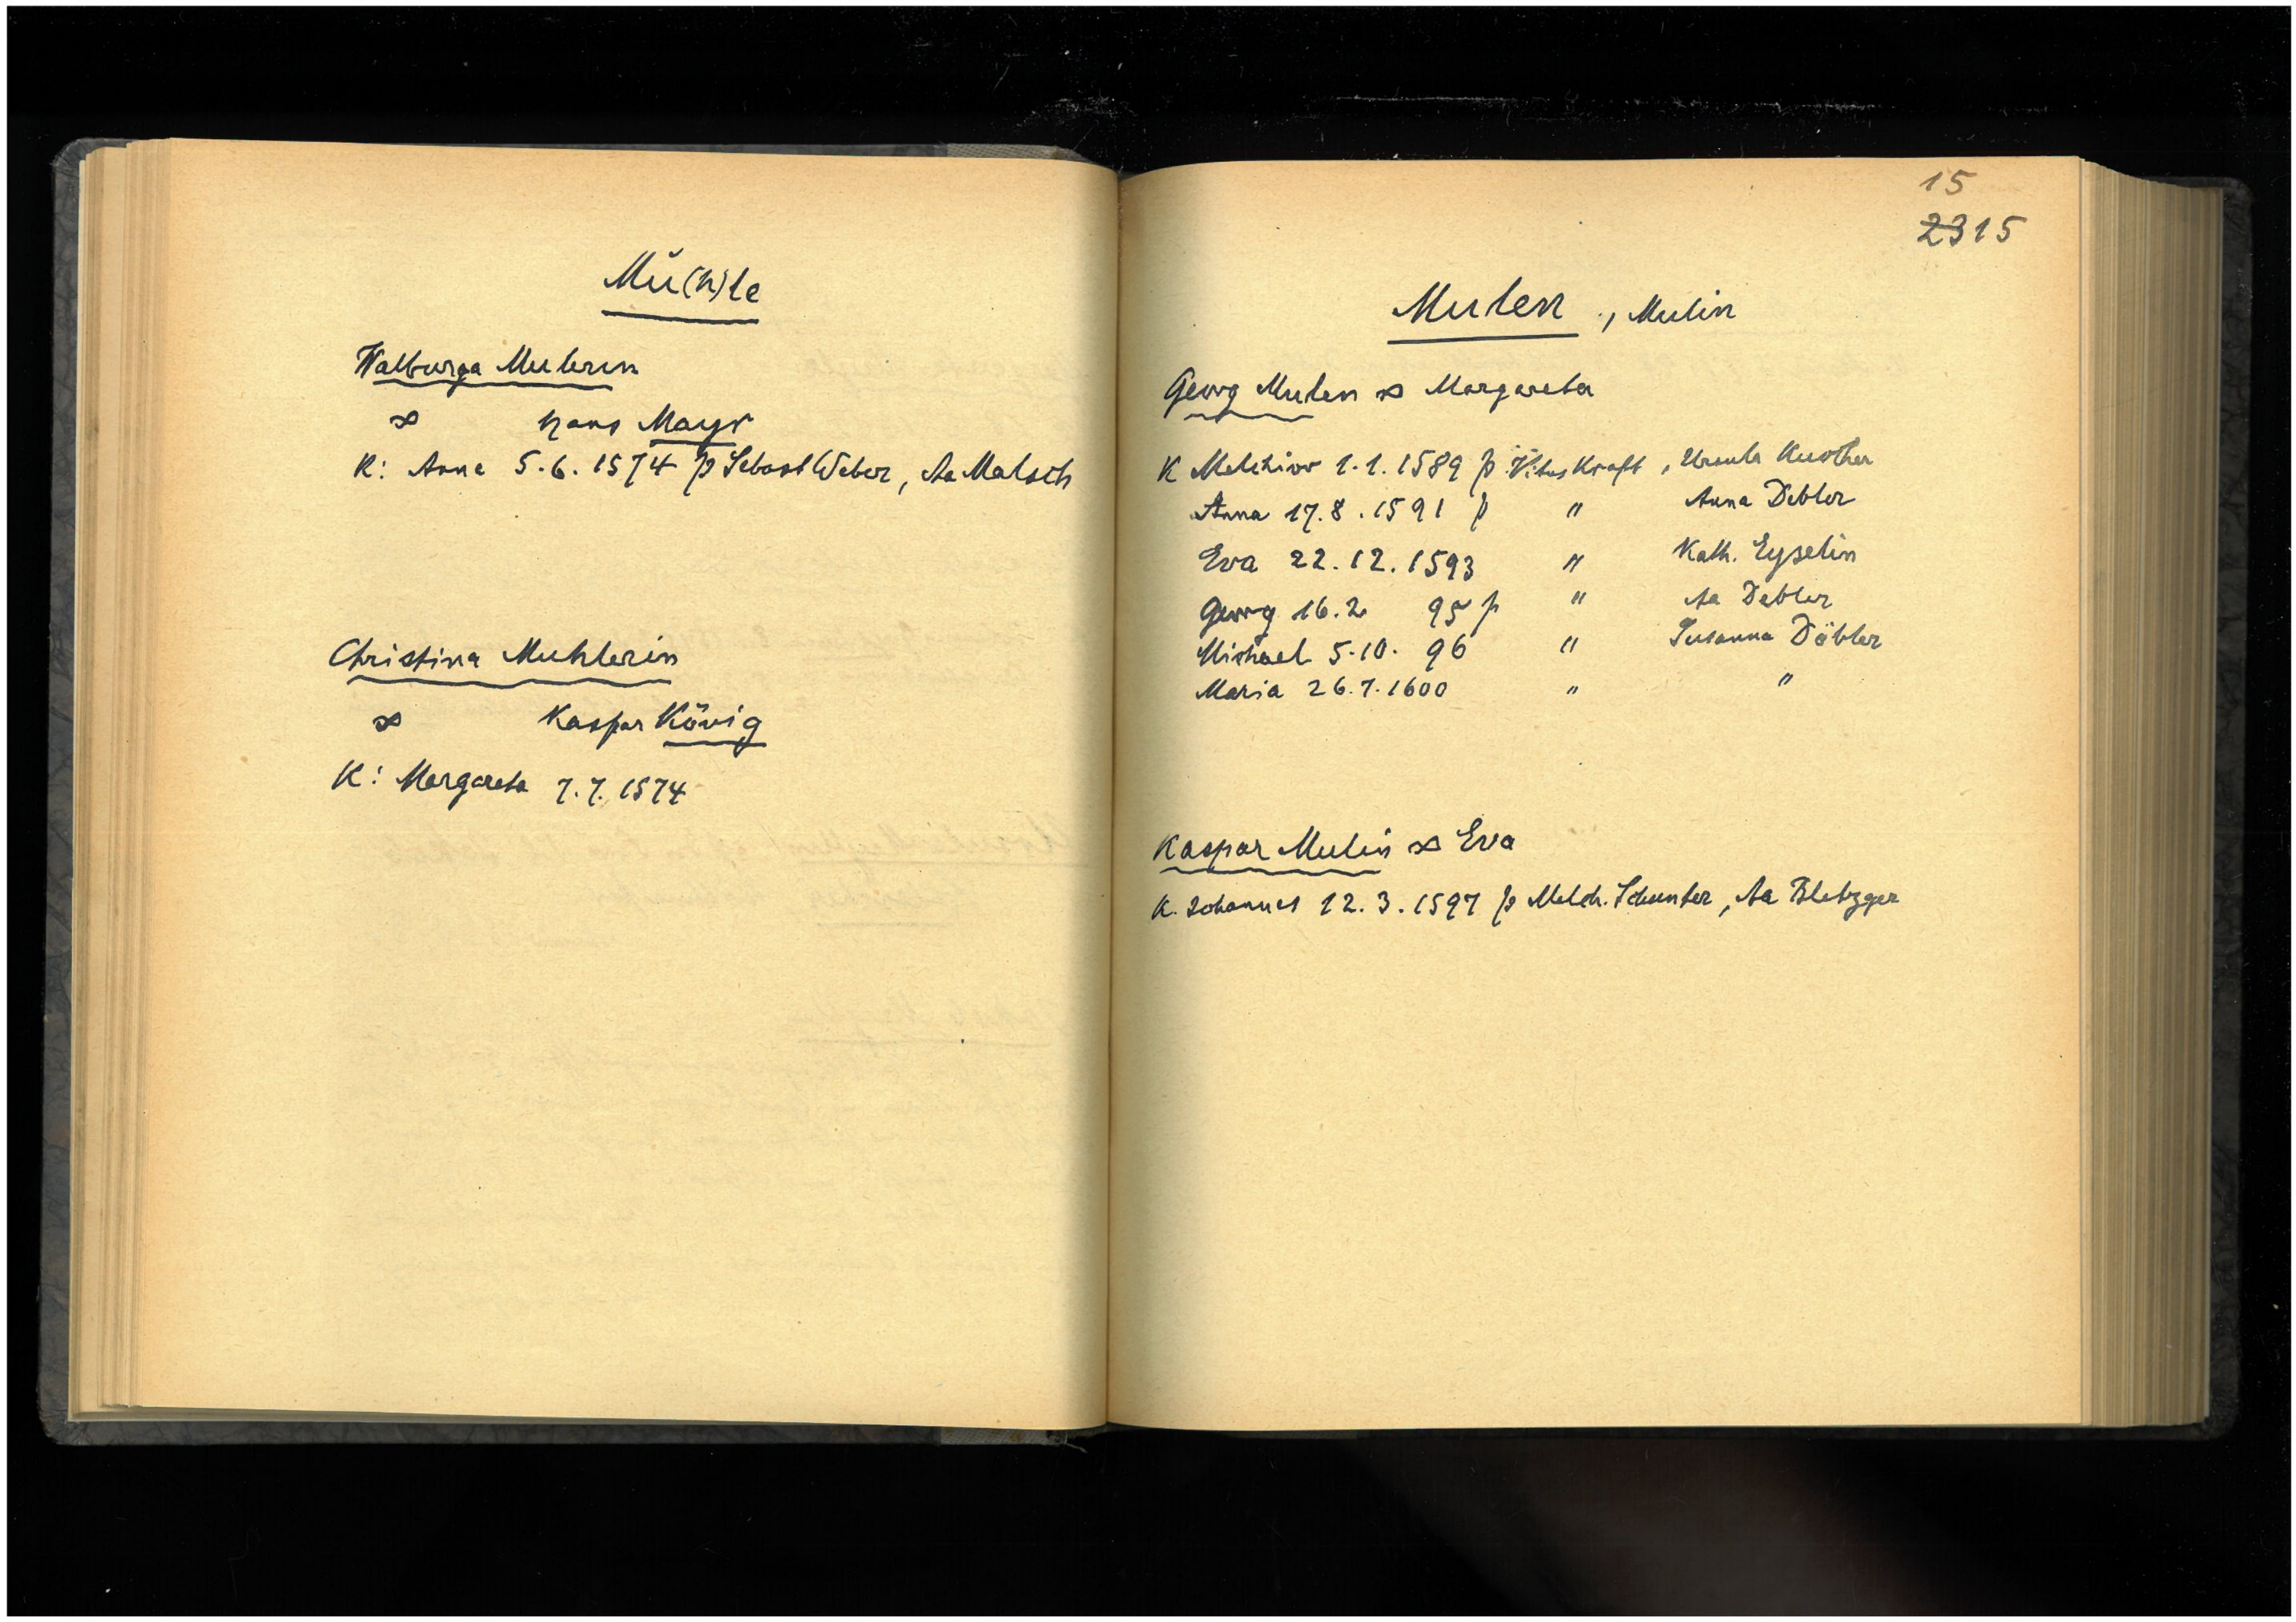 Mü(h)le
Walburga Mulerin
∞ Hans Mayr
K: Anna 5.6.1574 p Sebast Weber, Aa Malsch
Christina Muhlerin
∞ Kaspar König
K: Margareta 7.7.1574
15
2315
Mulen, Mulin
Georg Mulen ∞ Margareta
K Melchior 1.1.1589 p Vitus Kraft, Ursula
Anna 17.8.1591 p " Anna Debler
Eva 22.12.1593 " Kath. Eyselin
Georg 16.2 95 p " Aa Debler
Michael 5.10. 96 " Susanna Döbler
Maria 26.7.1600 " "
Kaspar Mulin ∞ Eva
K. Johannes 12.3.1597 p Melch. Schunter, Aa Bletzger